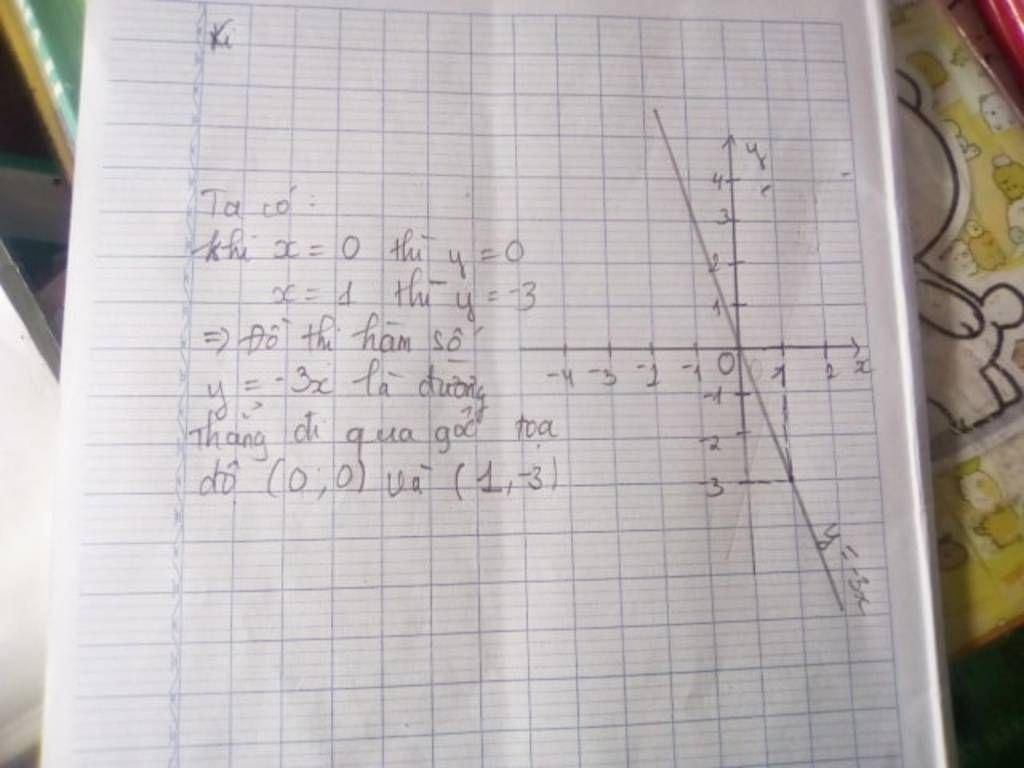 Ta có:
khi x = 0 thì y = 0
x = 1 thì y = -3
=> Đồ thị hàm số
y = -3x là đường
thẳng đi qua gốc tọa
độ (0; 0) và (1, -3)
y
4
3
2
1
-4 -3 -2 -1 0 1 2 x
-1
-2
-3
y = -3x